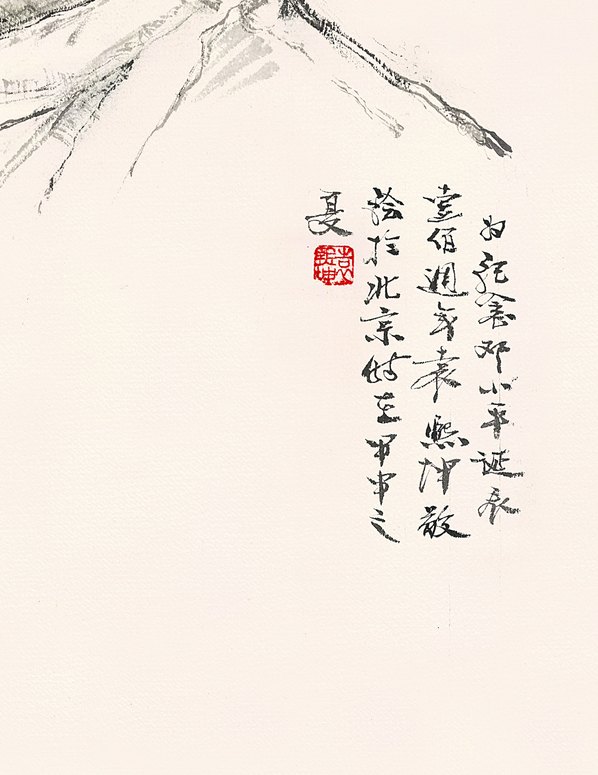 为記念邓小平诞辰
壹佰週年袁熙坤敬
绘於北京时在甲申之
夏